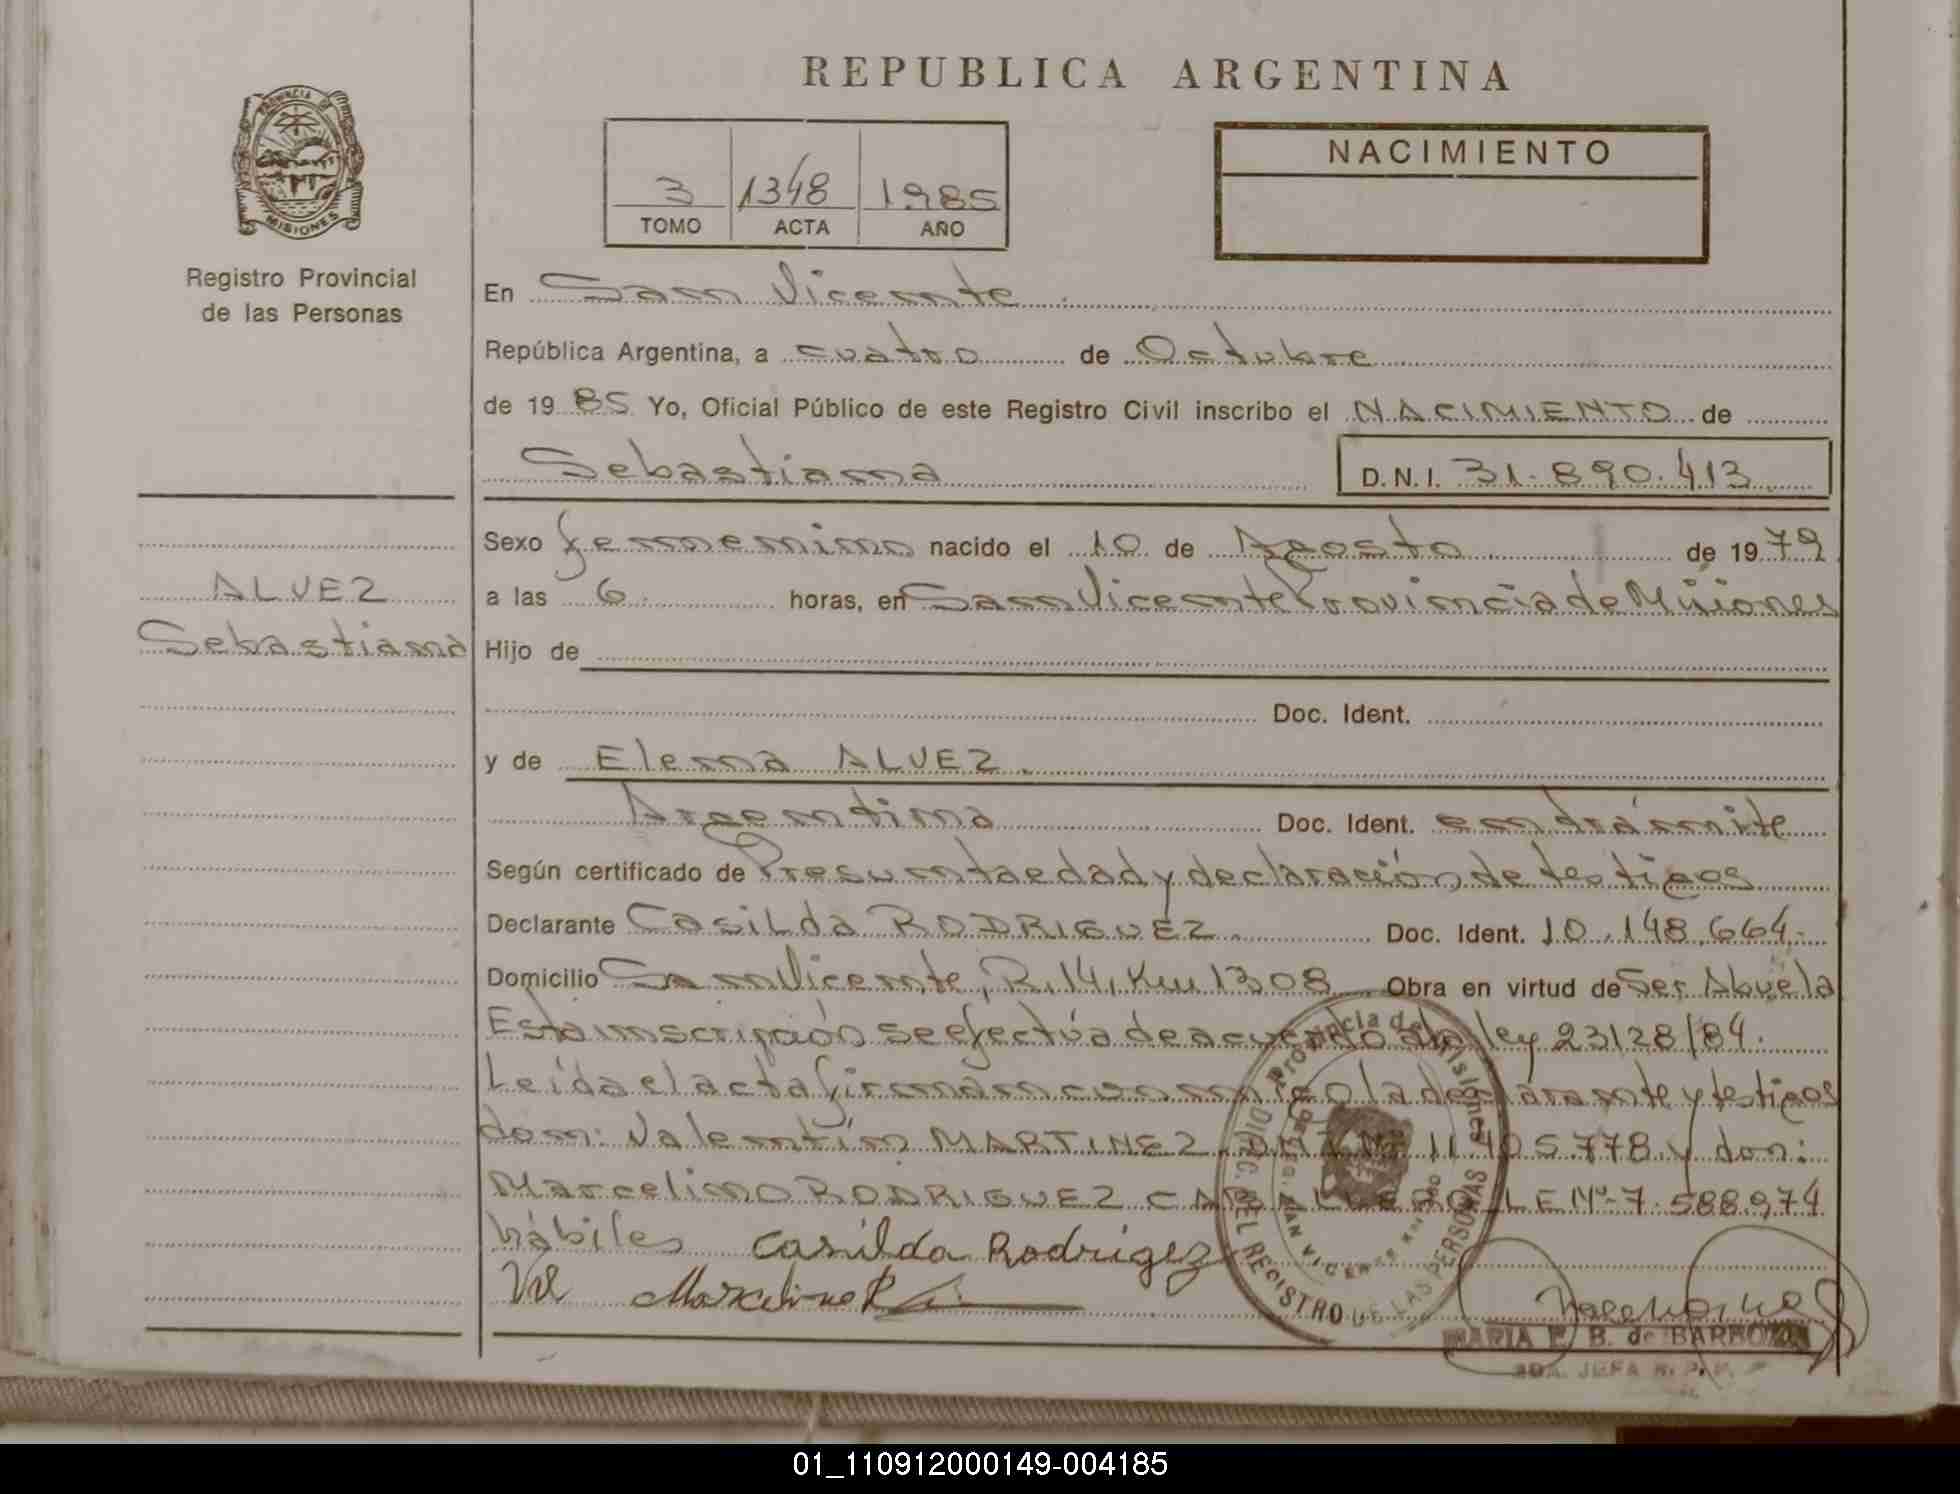 REPUBLICA ARGENTINA
PROVINCIA DE
MISIONES
Registro Provincial
de las Personas
3 1348 1985
TOMO ACTA AÑO
NACIMIENTO
En San Vicente
República Argentina, a cuatro de Octubre
de 19 85 Yo, Oficial Público de este Registro Civil inscribo el NACIMIENTO de
Sebastiana D.N.I. 31.890.413
Sexo femenino nacido el 10 de Agosto de 1979
a las 6 horas, en San Vicente Provincia de Misiones
ALVEZ
Sebastiana
Hijo de
Doc. Ident.
y de Elena ALVEZ.
Argentina Doc. Ident. en trámite
Según certificado de Presunta edad y declaración de testigos
Declarante Casilda RODRIGUEZ Doc. Ident. 10.148.664.-
Domicilio San Vicente, R. 14, Km 1308 Obra en virtud de Ser Abuela
Esta inscripción se efectúa de acuerdo a la ley 23128/84.
Leída el acta firman conmigo la declarante y testigos
don: Valentín MARTINEZ DNI Nº 11.405.778 y don:
Marcelino RODRIGUEZ CABALLERO LE Nº 7.588.974
hábiles Casilda Rodrigez
Marcelino R
Provincia de Misiones
DIREC. DEL REGISTRO DE LAS PERSONAS
SAN VICENTE
MARIA E. B. de BARBOZA
JEFA R. P. P.
01_110912000149-004185